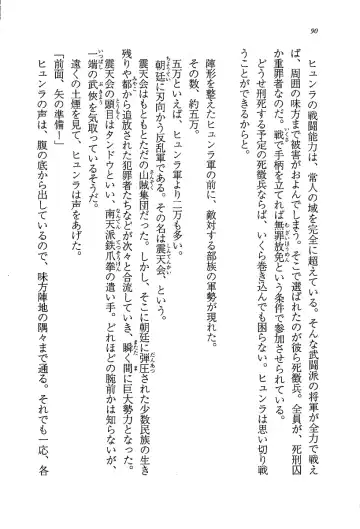 90
ヒュンラの戦闘能力は、常人の域を完全に超えている。そんな武闘派の将軍が全力で戦え
ば、周囲の味方まで被害がおよんでしまう。そこで選ばれたのが彼ら死徴兵。全員が、死刑囚
か重罪者なのだ。戦で手柄を立てれば無罪放免という条件で参加させられている。
どうせ刑死する予定の死徴兵ならば、いくら巻き込んでも困らない。ヒュンラは思い切り戦
うことができるからと。
陣形を整えたヒュンラ軍の前に、敵対する部族の軍勢が現れた。
その数、約五万。
五万といえば、ヒュンラ軍より二万も多い。
朝廷に刃向かう反乱軍である。その名は震天会、という。
震天会はもともとただの山賊集団だった。しかし、そこに朝廷に弾圧された少数民族の生き
残りや都から追放された犯罪者たちなどが次々と合流していき、瞬く間に巨大勢力となった。
震天会の頭目はタンドケといい、南天派鉄爪拳の遣い手。どれほどの腕前かは知らないが、
一端の武俠を気取っているそうだ。
遠くの土煙を見て、ヒュンラは声をあげた。
「前面、矢の準備!」
ヒュンラの声は、腹の底から出しているので、味方陣地の隅々まで通る。それでも一応、各